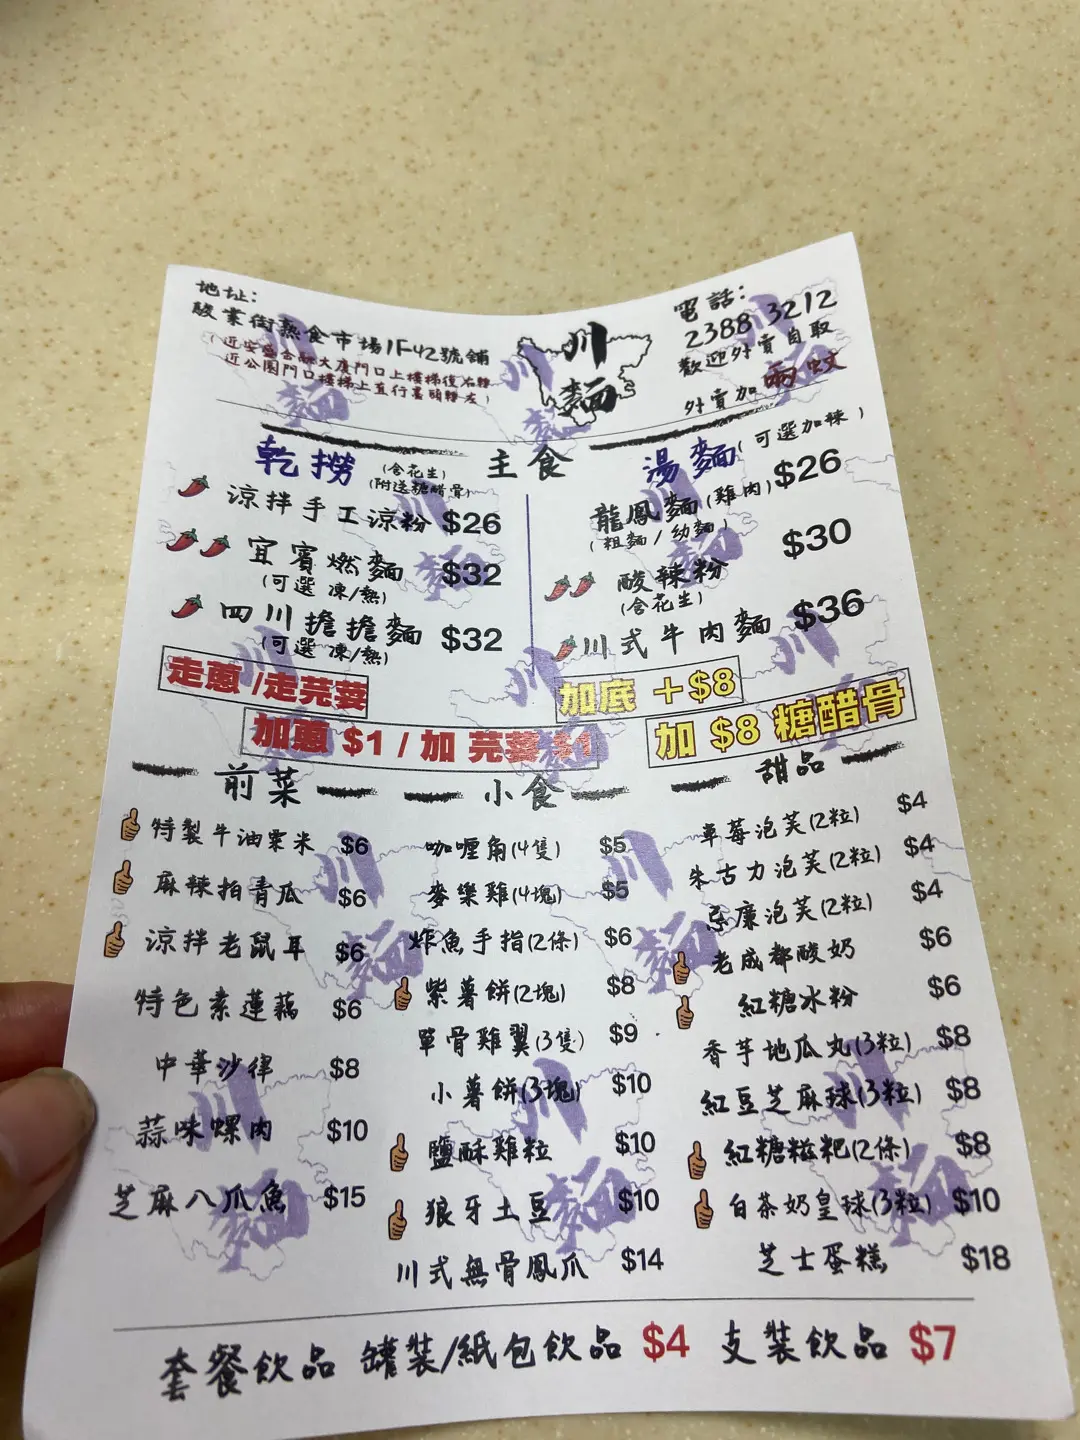 地址：
駿業街熱食市場1F42號舖
（近安盛金融大廈門口上樓梯後右轉
近公園門口樓梯上直行盡頭轉左）
川
麵
電話：
2388 3212
歡迎外賣自取
外賣加兩蚊
主食
乾撈 (含花生)
(附送糖醋骨)
涼拌手工涼粉 $26
宜賓燃麵 $32
(可選 凍/熱)
四川擔擔麵 $32
(可選 凍/熱)
湯麵(可選加辣)
龍鳳麵(雞肉) $26
(粗麵/幼麵)
酸辣粉 $30
(含花生)
川式牛肉麵 $36
走蔥 /走芫荽
加蔥 $1 / 加 芫荽 $1
加底 ＋$8
加 $8 糖醋骨
前菜
特製牛油粟米 $6
麻辣拍青瓜 $6
涼拌老鼠耳 $6
特色素蓮藕 $6
中華沙律 $8
蒜味螺肉 $10
芝麻八爪魚 $15
小食
咖喱角(4隻) $5
麥樂雞(4塊) $5
炸魚手指(2條) $6
紫薯餅(2塊) $8
單骨雞翼(3隻) $9
小薯餅(3塊) $10
鹽酥雞粒 $10
狼牙土豆 $10
川式無骨鳳爪 $14
甜品
草莓泡芙(2粒) $4
朱古力泡芙(2粒) $4
忌廉泡芙(2粒) $4
老成都酸奶 $6
紅糖冰粉 $6
香芋地瓜丸(3粒) $8
紅豆芝麻球(3粒) $8
紅糖糍粑(2條) $8
白茶奶皇球(3粒) $10
芝士蛋糕 $18
套餐飲品 罐裝/紙包飲品 $4 支裝飲品 $7